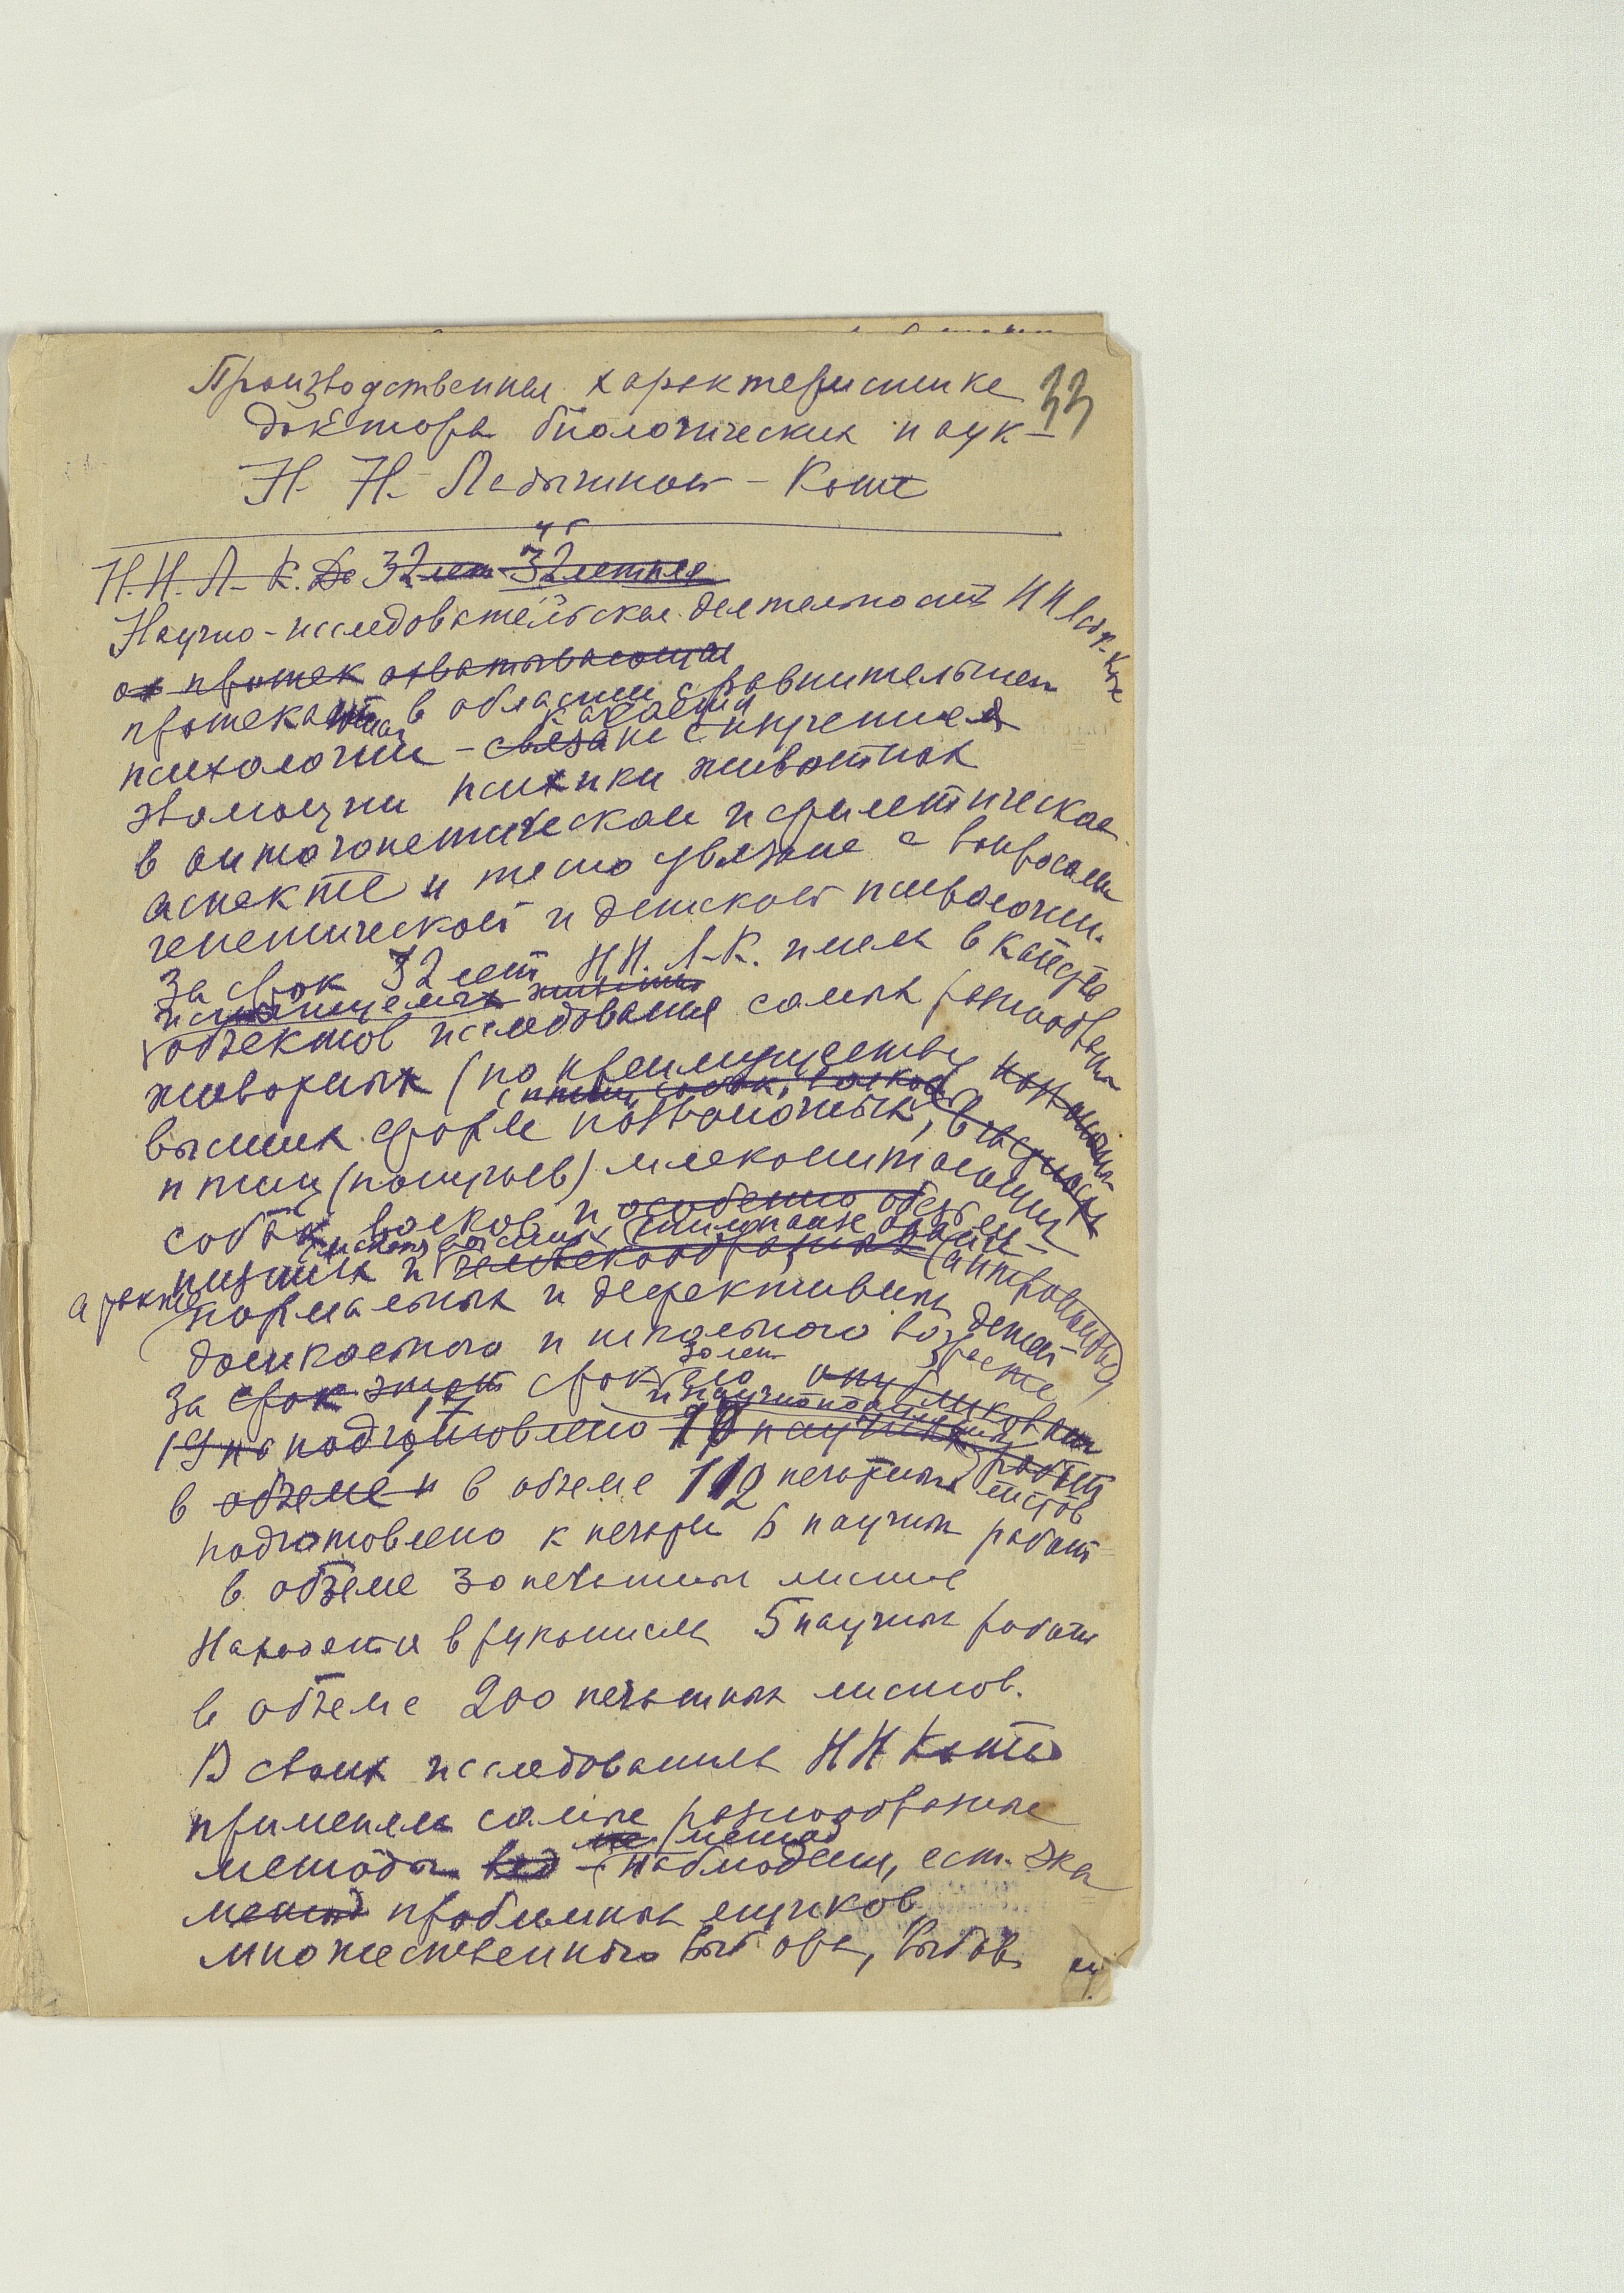 33
Производственная характеристика
доктора биологических наук –
Н. Н. Ладыгиной – Котс
Н. Н. Л. К. За 32 лет 32 летняя
Научно-исследовательская деятельность Н Н Лад.-Котс
протек охватывающая
протекающая в области сравнительной
психологии – связана касается изучения
эволюции психики животных
в онтогенетическом и филетическом
аспекте и тесно увязана с вопросами
генетической и детской психологии.
За срок 32 лет Н Н. Л-К. имела в качестве
объектов исследования самых разнообразных
животных (по преимуществу
птиц, собак, волков
высших форм позвоночных,
птиц (попугаев) млекопитающих
собак, волков и особенно обезьян
низших и (шимпанзе (антропоидов)
а также
нормальных и дефективных детей
дошкольного и школьного возраста
За срок этот срок опубликован
30 лет
19 подготовлено 19 научных работ
в объеме и в объеме 112 печатных листов
подготовлено к печати 6 научных работ
в объеме 30 печатных листов
Находятся в рукописях 5 научных работ
в объеме 200 печатных листов.
В своих исследованиях Н Н Котс
применяла самые разнообразные
методы – (метод наблюдения, ест. экс
метод проблемных ящиков,
множественного выбора, выбора